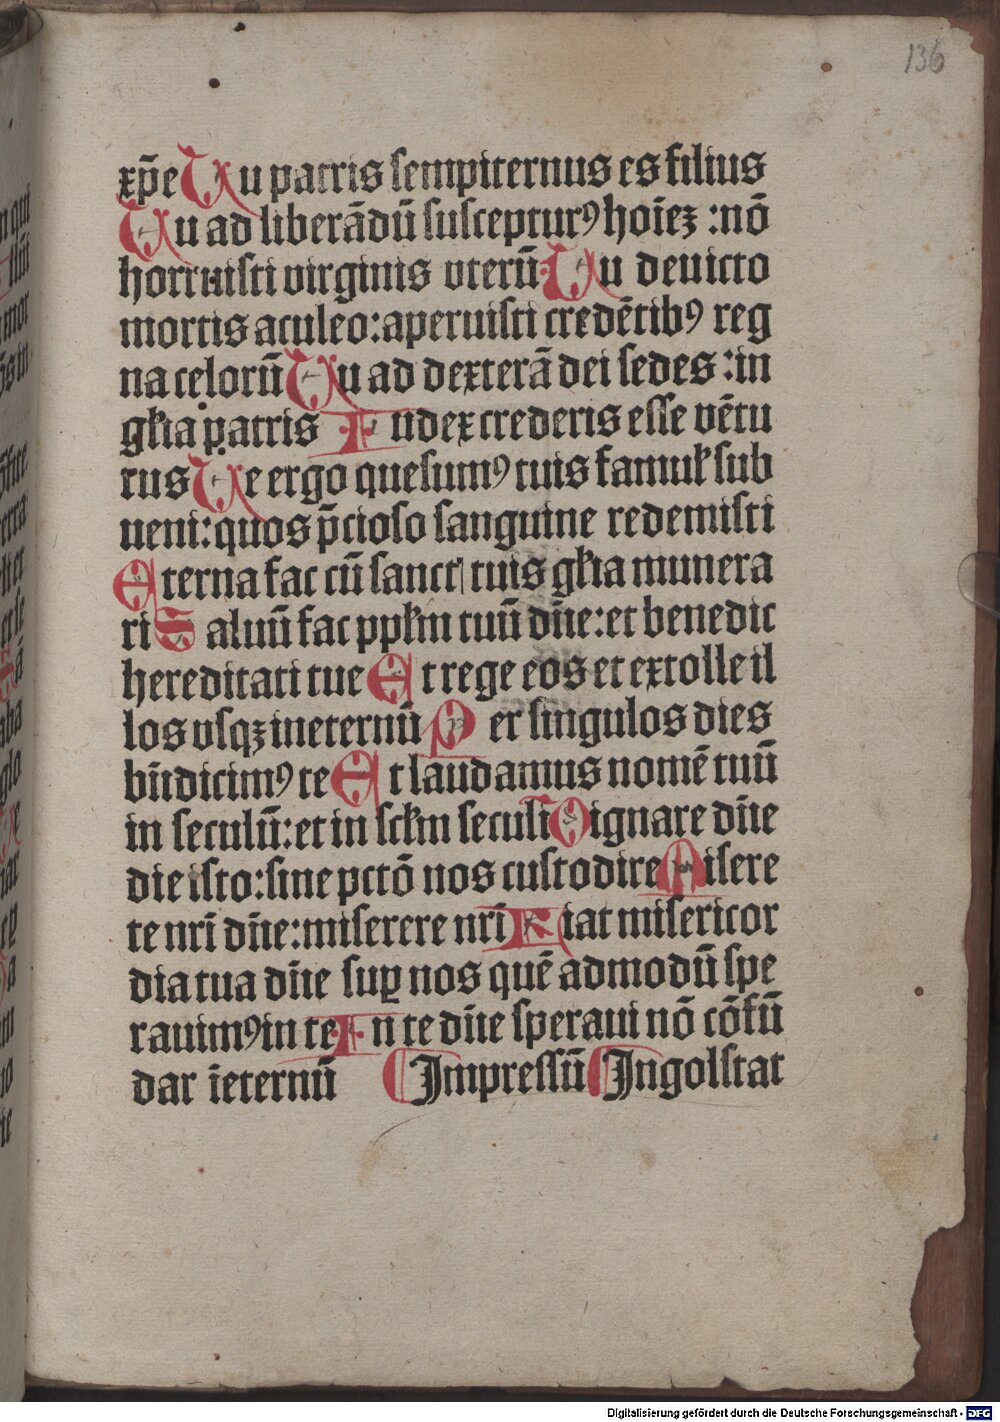 136
xp̄e Tu patris ſempiternus es filius
Tu ad liberādū ſuſcepturꝰ hoīeꝫ : nō
horruiſti virginis vterū Tu deuicto
mortis aculeo: aperuiſti credētibꝰ reg
na celorū Tu ad dexterā dei ſedes : in
gl̄ia patris Iudex crederis eſſe vētu
rus Te ergo queſumꝰ tuis famul̄ ſub
ueni: quos p̄cioſo ſanguine redemiſti
Eterna fac cū ſanctꝭ tuis gl̄ia munera
ri Saluū fac ppl̄m tuū dn̄e: et benedic
hereditati tue Et rege eos et extolle il
los vſqꝫ ineternū Per ſingulos dies
bn̄dicimꝰ te Et laudamus nomē tuū
in ſeculū: et in ſcl̄m ſeculi Dignare dn̄e
die iſto: ſine pctō nos cuſtodire Miſere
re nrī dn̄e: miſerere nrī Fiat miſericor
dia tua dn̄e ſuꝑ nos quē admodū ſpe
rauimꝰ in te In te dn̄e ſperaui nō cōfū
dar īeternū Impreſſū Ingolſtat
Digitalisierung gefördert durch die Deutsche Forschungsgemeinschaft - DFG